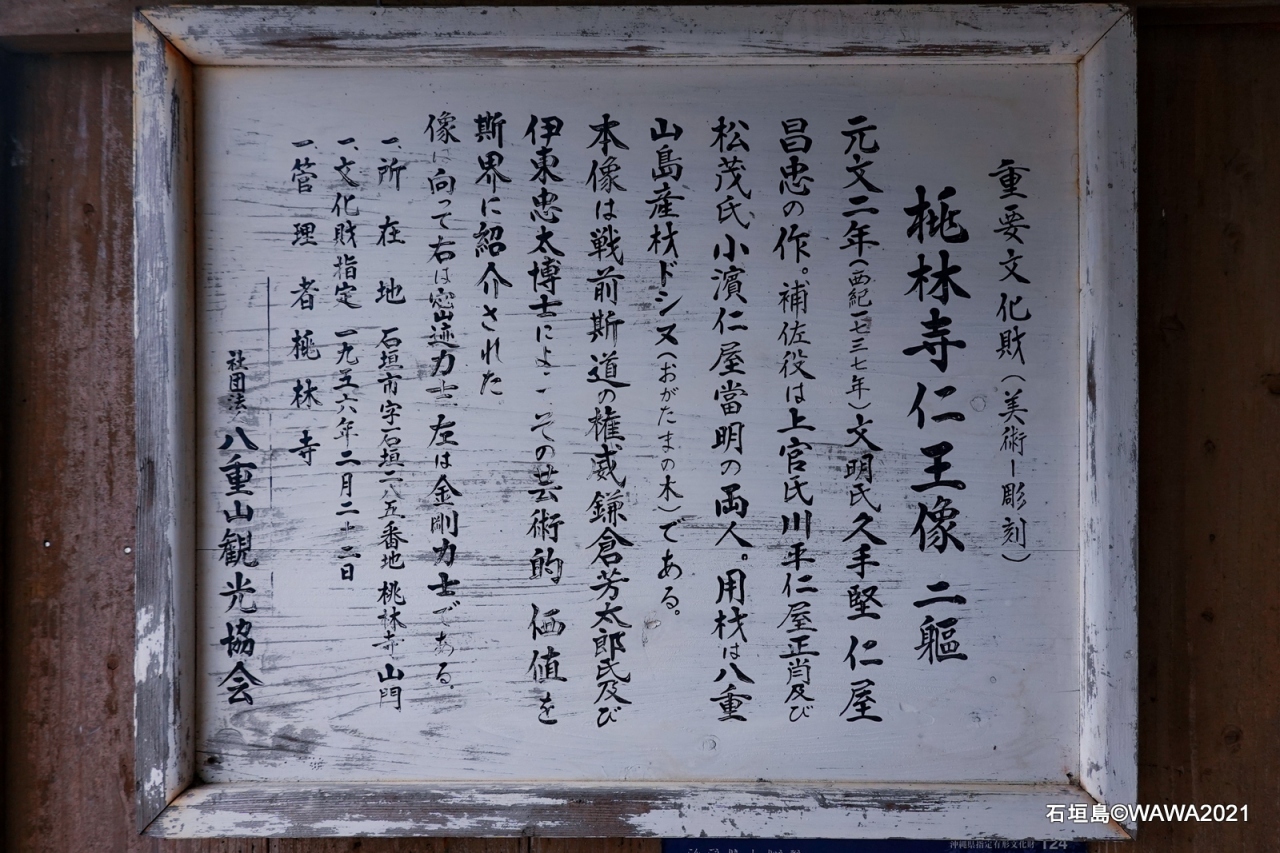 重要文化財(美術ー彫刻)
桃林寺仁王像 二軀
元文二年(西紀一七三七年)文明氏久手堅仁屋
昌忠の作。補佐役は上官氏川平仁屋正肖及び
松茂氏小濱仁屋當明の両人。用材は八重
山島産材ドシヌ(おがたまの木)である。
本像は戦前斯道の権威鎌倉芳太郎氏及び
伊東忠太博士によ その芸術的価値を
斯界に紹介された
像に向って右は密迹力士 左は金剛力士である。
一、所在地 石垣市字石垣二八五番地 桃林寺山門
一、文化財指定 一九五六年二月二十二日
一、管理者 桃林寺
社団法人 八重山観光協会
石垣島©WAWA2021
沖縄県指定有形文化財 124